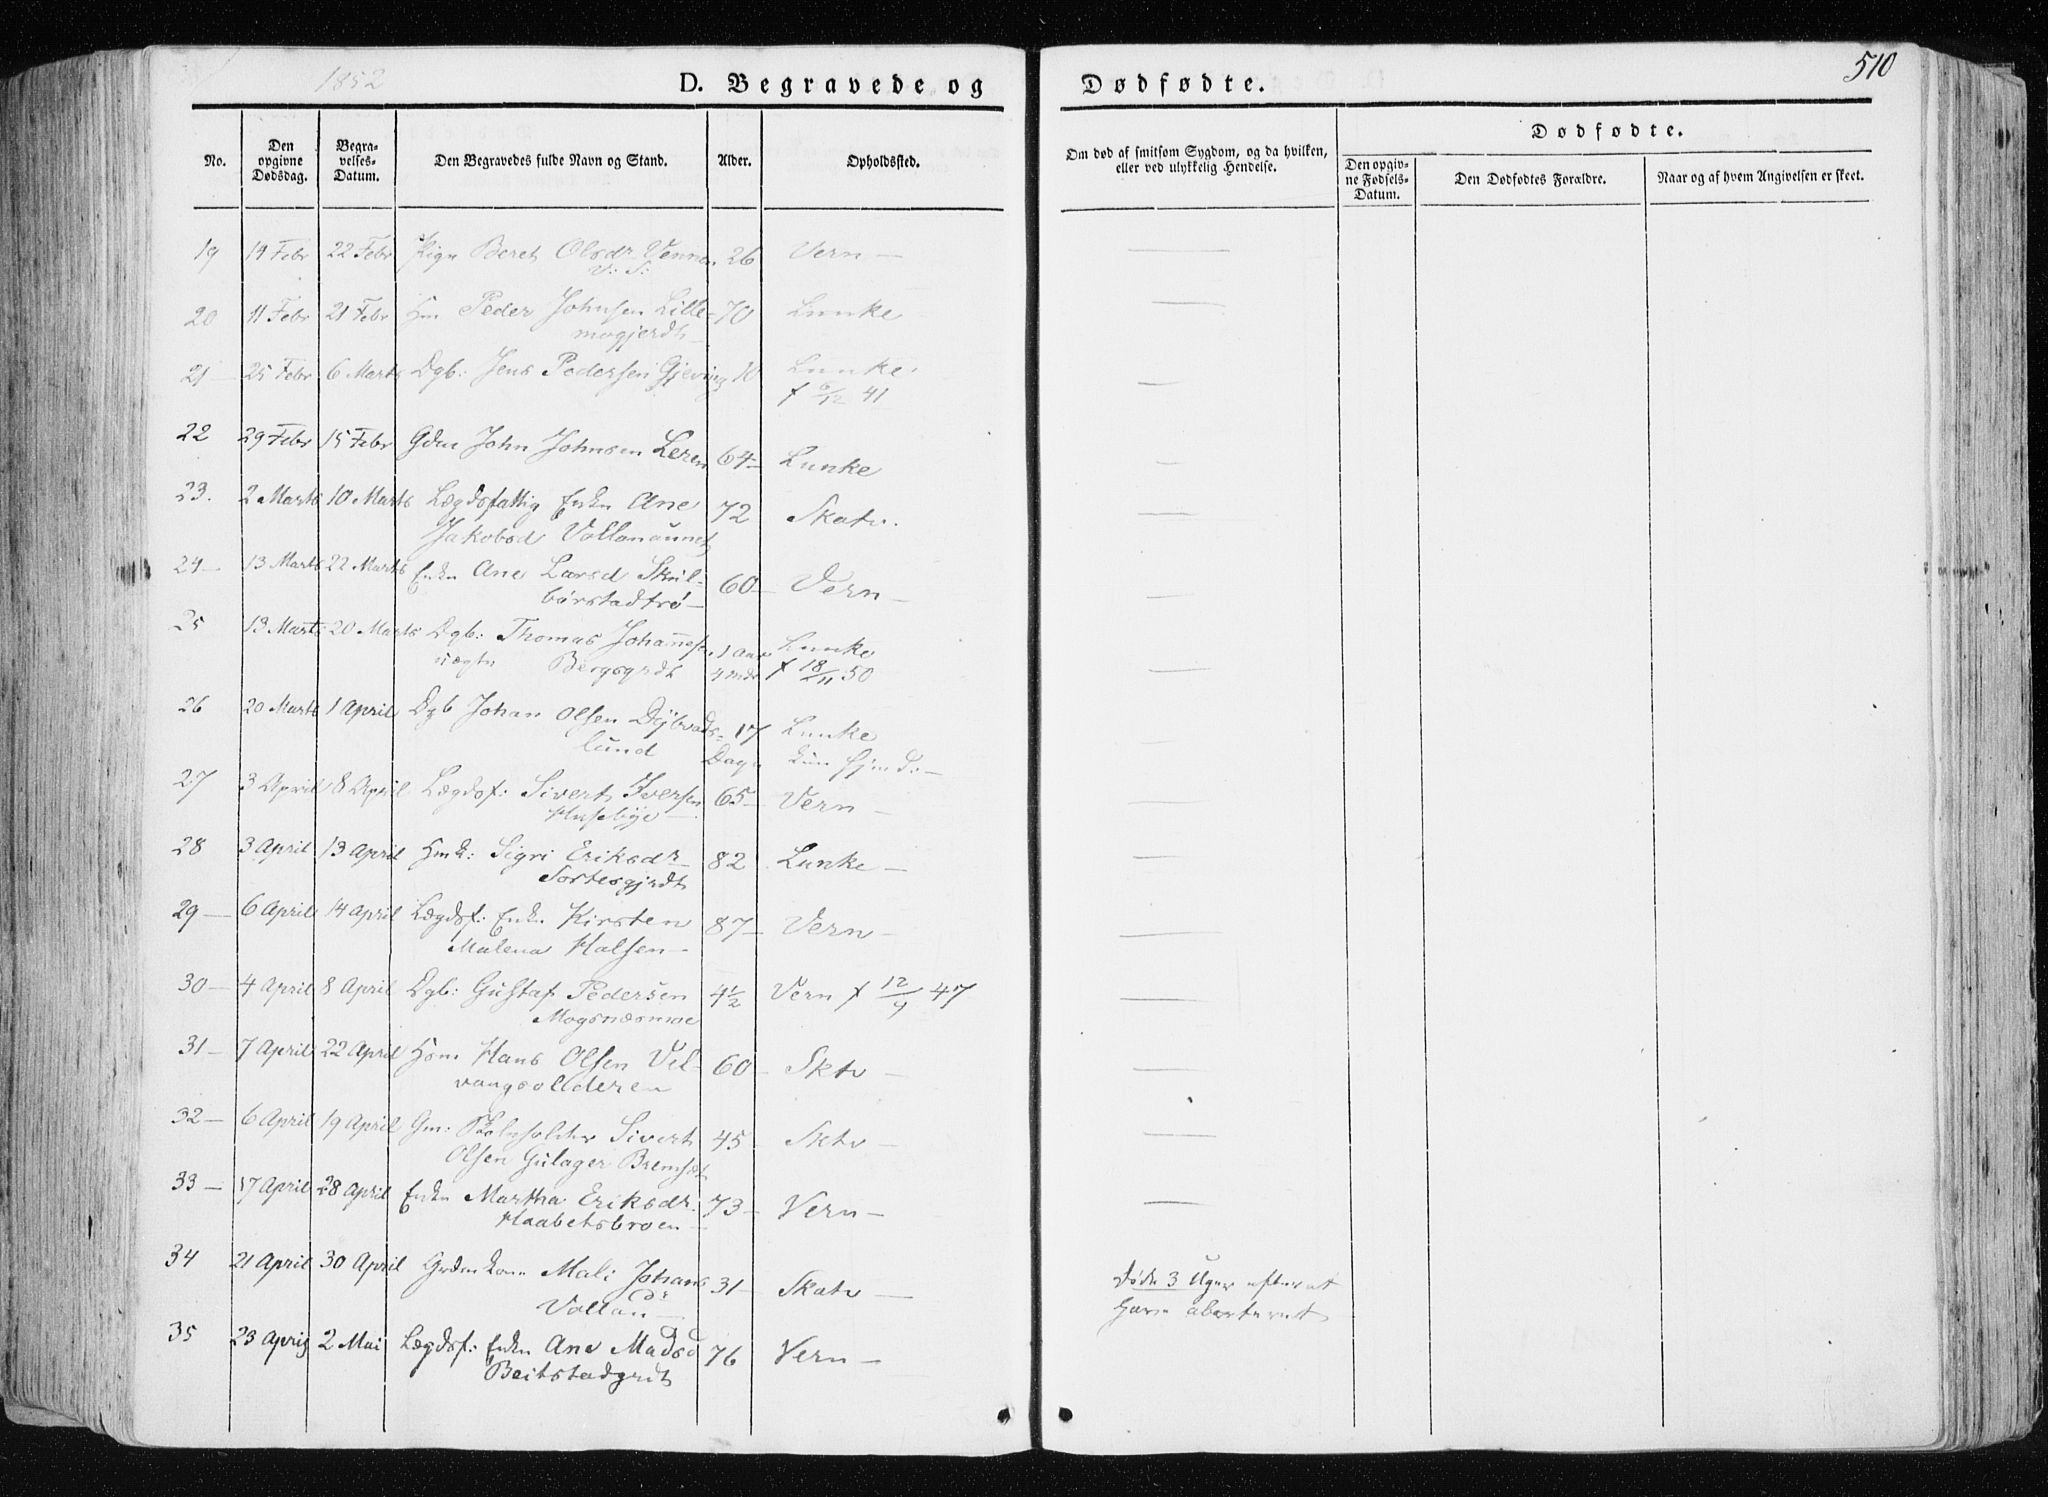 510
1852
D. Begravede og Dødfødte.
No.
Den opgivne Dødsdag.
Begravelses-Datum.
Den Begravedes fulde Navn og Stand.
Alder.
Opholdssted.
Om død af smitsom Sygdom, og da hvilken, eller ved ulykkelig Hendelse.
Dødfødte.
Den opgivne Fødsels-Datum.
Den Dødfødtes Forældre.
Naar og af hvem Angivelsen er skeet.
19 19 Febr 22 Febr Pign Beret Olsdr Vennen 26 Vern —
V: S:
20 11 Febr 21 Febr Hm Peder Johnsen Lille- 70 Lunke
mogjerdt
21 — 25 Febr 6 Marts Dgb: Jens Pedersen Gjeving 10 Lunke
f 6/12 41
22 29 Febr 15 Febr Gdm John Johnsen Leren 64 — Lunke
23. 2 Marts 10 Marts Lægdsfattig Enkn Ane 72 Skatv.
Jakobsd Vollanaunet
24 — 13 Marts 22 Marts Enkn Ane Larsd Skjel- 60 — Vern —
børstadtrø —
25 13 Marts 20 Marts Dgb: Thomas Johannesen 1 Aar Lunke
uægte Bergsgrdt 4 mdr f 18/11 50
26 20 Marts 1 April Dgb Johan Olsen Dybvads- 17 Lunke
lund Dage kun hjemd: —
27 3 April 8 April Lægdsf: Sivert Iversen 65 — Vern —
Husebye —
28 3 April 13 April Hmk: Sigri Eriksdr 82 Lunke —
Sortesgjrdt
29 — 6 April 14 April Lægdsf: Enkn Kirsten 87 — Vern —
Malena Halsen —
30 — 4 April 8 April Dgb: Gustaf Pedersen 4½ Vern f 12/9 47
Mogsnæsmoe
31 — 7 April 22 April Hsm Hans Olsen Vel- 60 — Sktv —
vangsollderen
32 — 6 April 19 April Gm: Sivert 45 — Sktv —
Olsen Gulager Bremset
33 — 17 April 28 April Enkn Martha Eriksdr 73 — Vern —
Haabetsbroen —
34 21 April 30 April Grdmkone Mali Johans 31 — Skatv —
dr
Vollan —
Døde 3 Uger efter at
have aborteret
35 23 April 2 Mai Lægdsf: Enkn Ane Madsd 76 Vern —
Beitstadgrdt